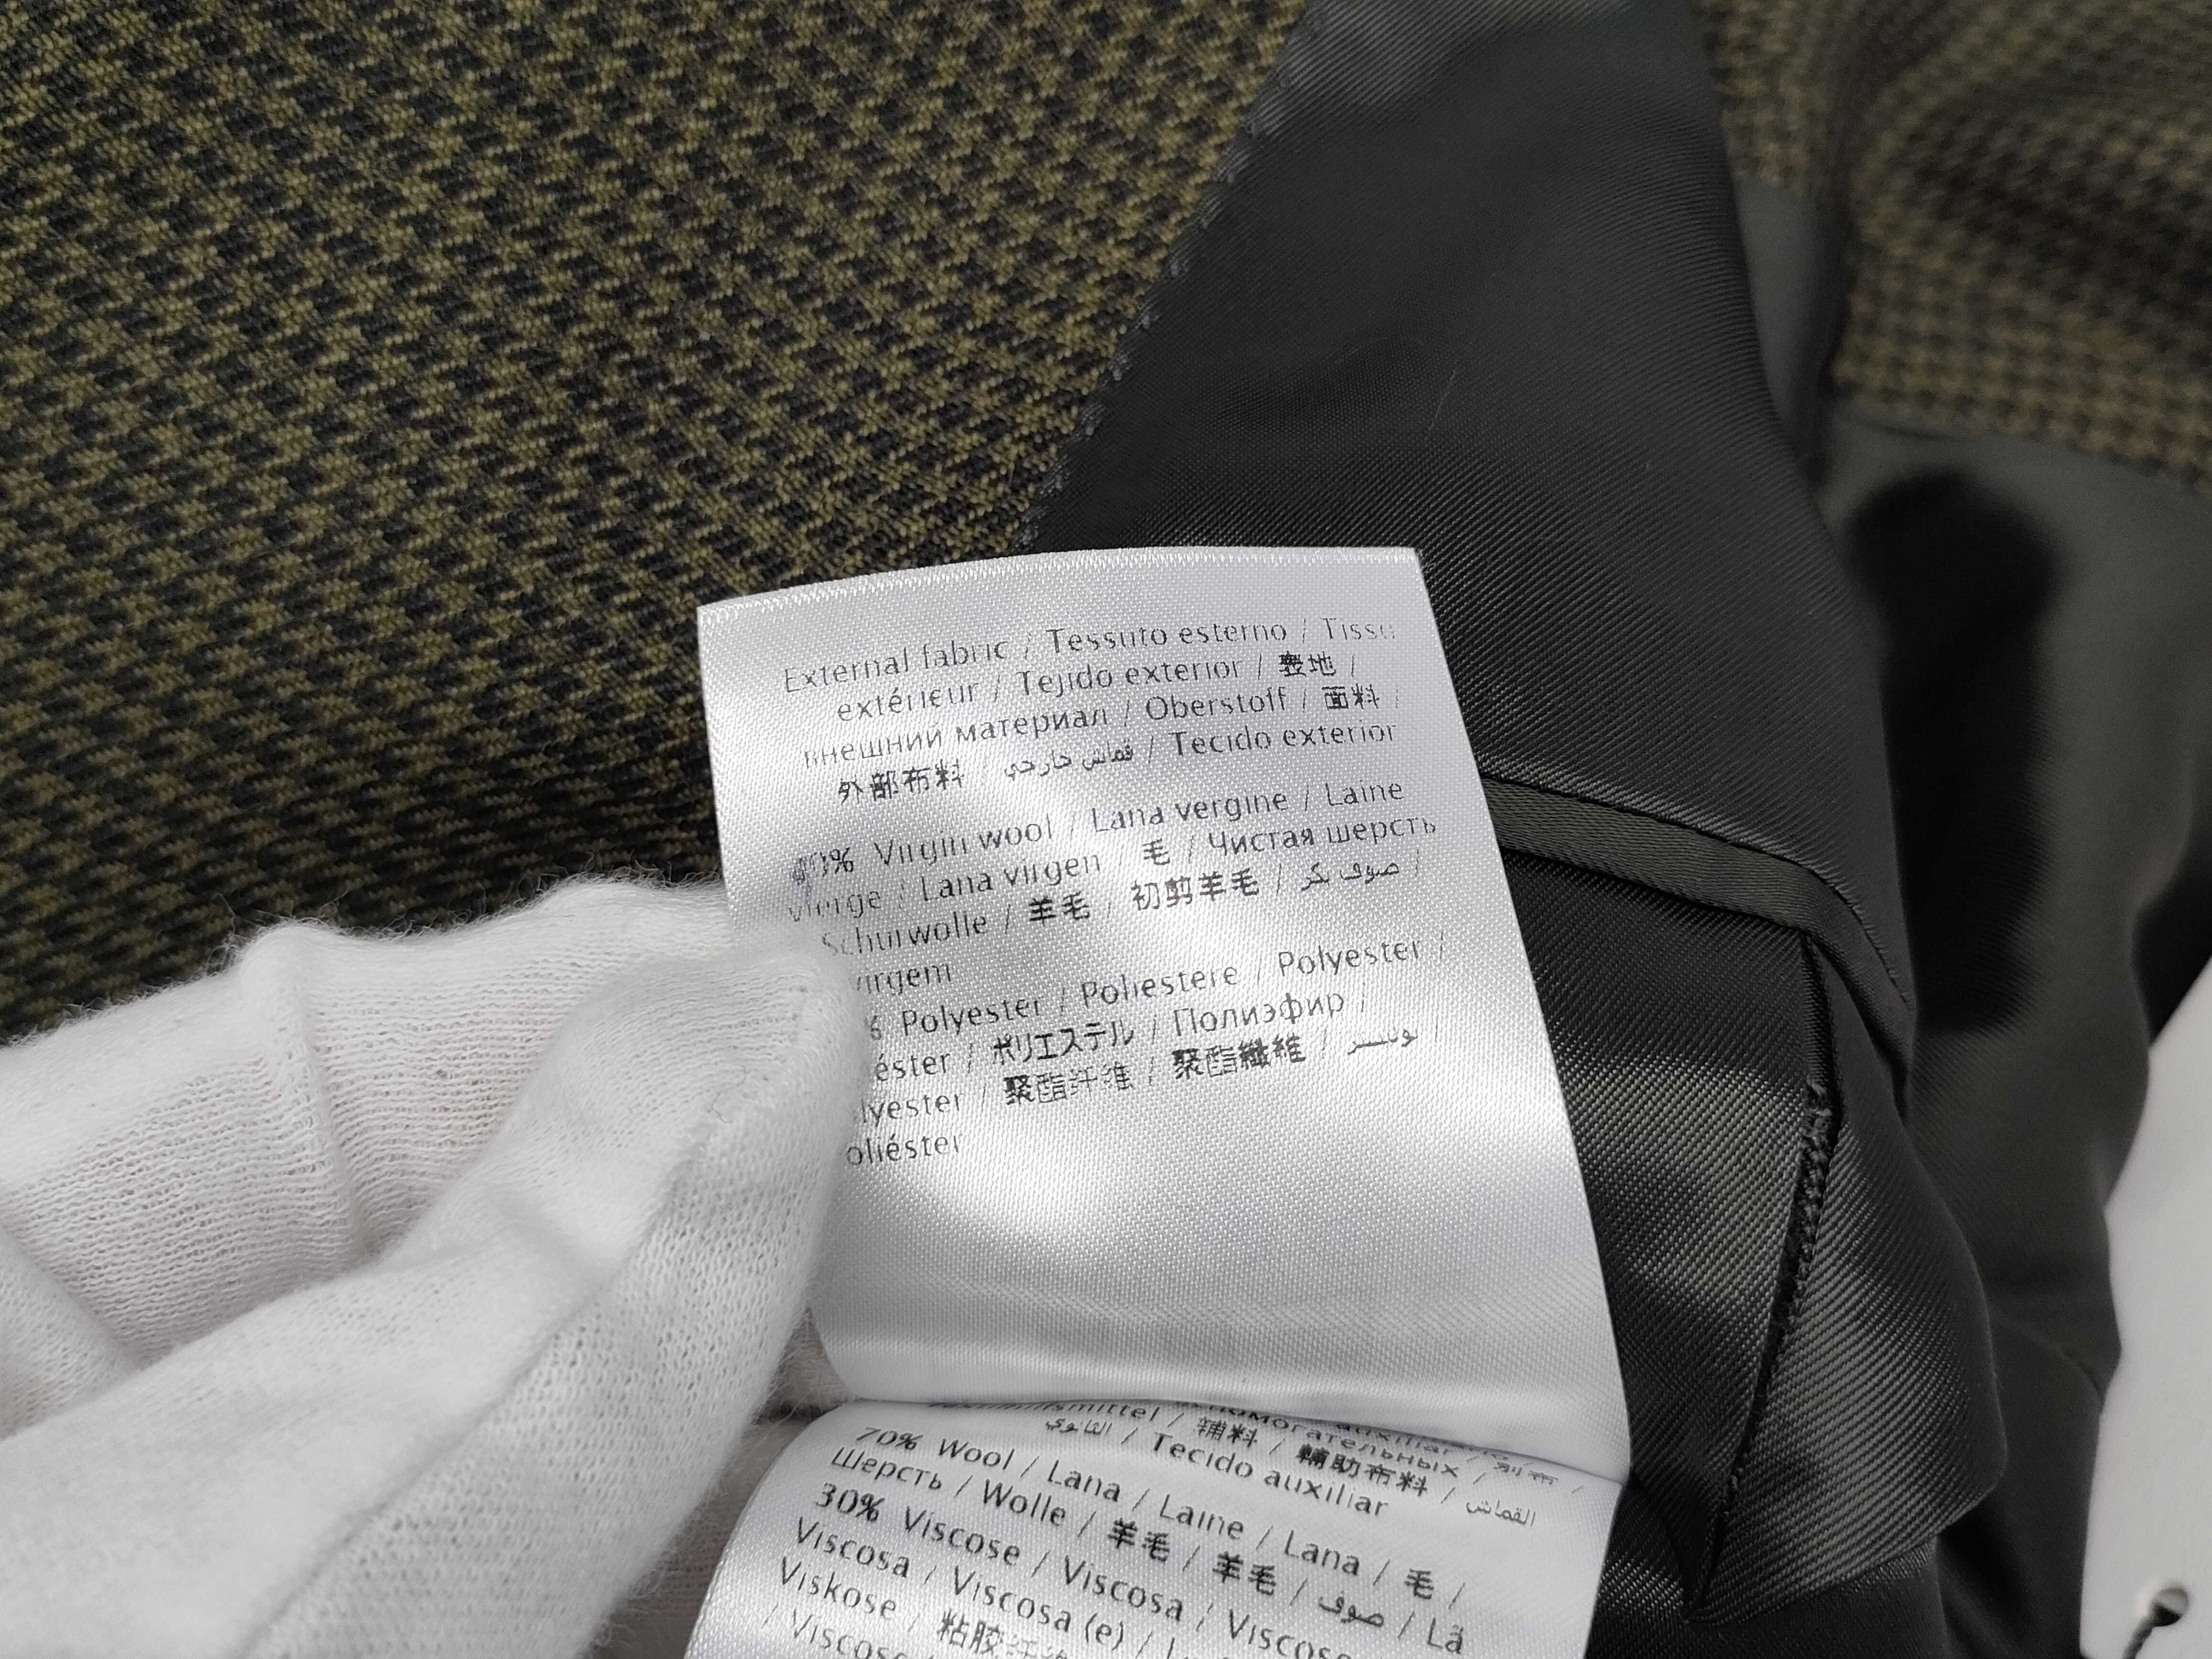 External fabric / Tessuto esterno / Tissu
extérieur / Tejido exterior / 表地 /
внешний материал / Oberstoff / 面料 /
外部布料 / قماش خارجي / Tecido exterior
Virgin wool / Lana vergine / Laine
vierge / Lana virgen / 毛 / Чистая шерсть
Schurwolle / 羊毛 / 初剪羊毛 / صوف بكر /
virgem
% Polyester / Poliestere / Polyester /
éster / ポリエステル / Полиэфир /
lyester / 聚酯纤维 / 聚酯纖維 / بوليستر /
oliéster
auxiliar
smittel / 辅料 / 輔助布料 / القماش
الثانوي / Tecido auxiliar
70% Wool / Lana / Laine / Lana / 毛 /
Шерсть / Wolle / 羊毛 / 羊毛 / صوف / Lã
30% Viscose / Viscosa / Viscose
Viscosa / Viscosa (e) /
Viskose / 粘胶纤维
/ Viscose